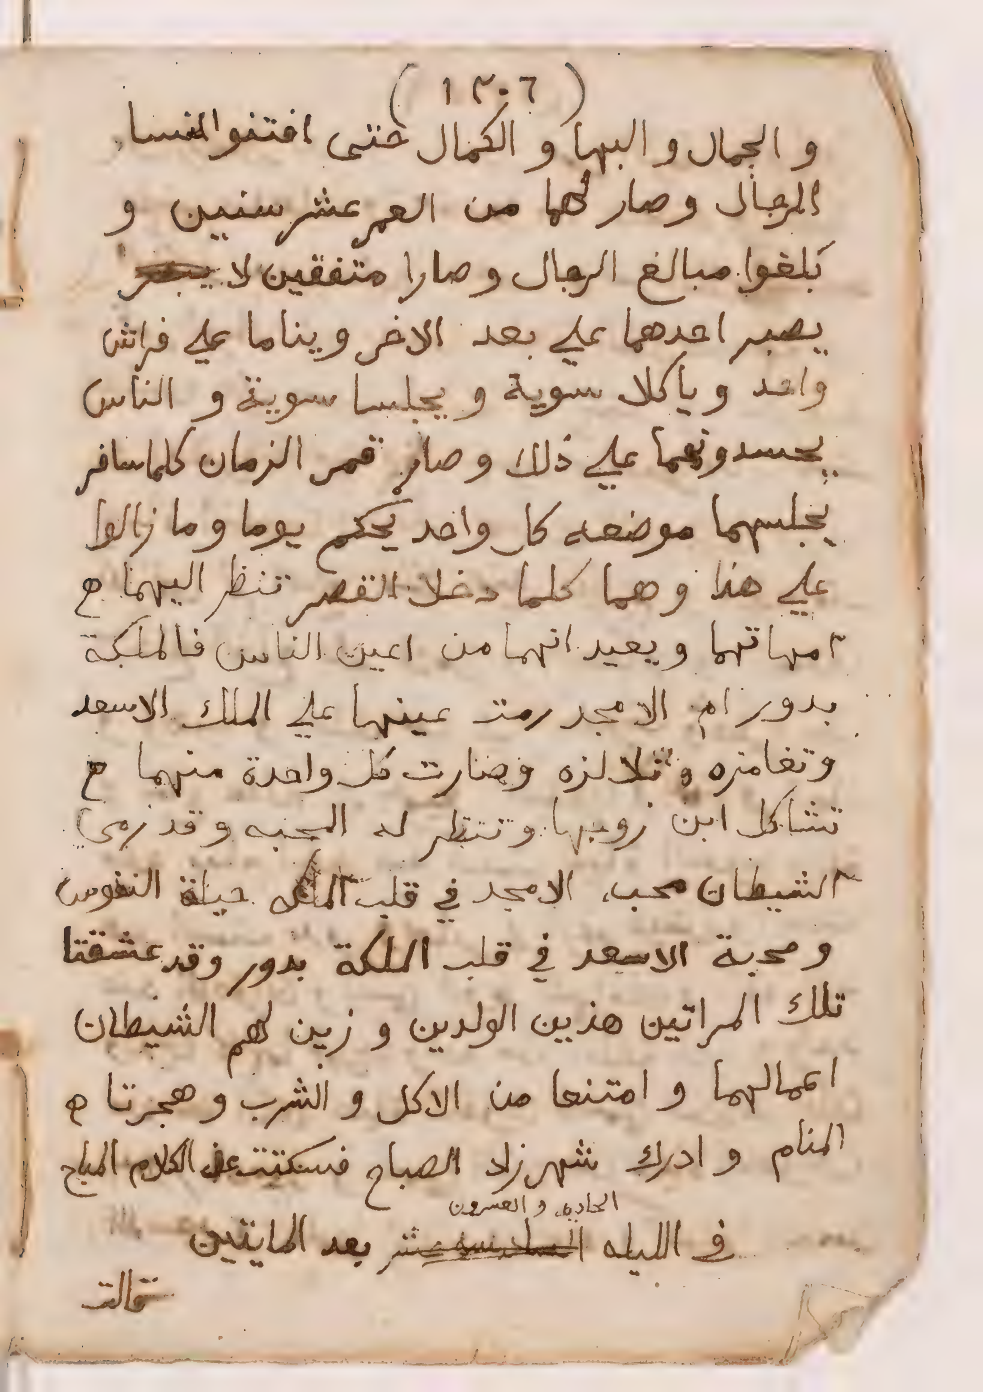 (١٣٠٦)
و الجمال و البها و الكمال حتى افتنوا النسا
الرجال و صار لهما من العمر عشر سنين و
بلغوا مبالغ الرجال و صارا متفقين لا
يصبر احدهما علي بعد الاخر و يناما علي فراش
واحد و ياكلا سوية و يجلسا سوية و الناس
يحسدونهما علي ذلك و صار قمر الزمان كلما سافر
يجلسهما موضعه كل واحد يحكم يوما و ما زالوا
علي هذا و هما كلما دخلا القصر تنظر اليهما
امهاتهما و يعيدانهما من اعين الناس فالملكة
بدور ام الامجد رمت عينها علي الملك الاسعد
و تغامزه و تلالزه و صارت كل واحدة منهما
تشاكل ابن زوجها و تنظر له المحبه و قد رمي
الشيطان محبه الامجد في قلب الملكه حياة النفوس
و محبة الاسعد في قلب الملكة بدور و قد عشقتا
تلك المراتين هذين الولدين و زين لهم الشيطان
اعمالهما و امتنعا من الاكل و الشرب و هجرتا
المنام و ادرك شهرزاد الصباح فسكتت عن الكلام المباح
الحاديه و العشرون
في الليله السادسه عشر بعد المايتين
قالت